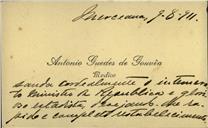 Merceana, 9-8-911.
Antonio Guedes de Gouvêa
Medico
sauda cordealmente o
Ministro da Republica e
estadista, desejando-lhe ra-
pido e completo restabelecimento